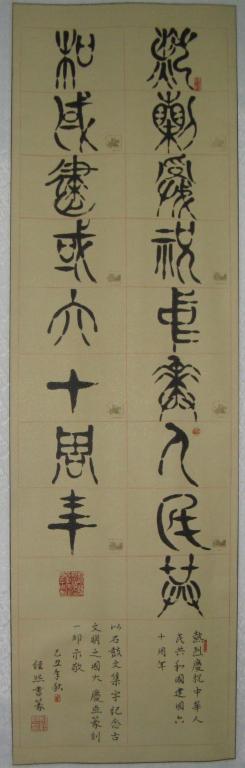 熱烈慶祝中華人民共
和國建國六十周年
熱烈慶祝中華人
民共和國建國六
十周年
以石鼓文集字記念古
文明之國大慶並篆刻
一印示敬
己丑年秋
書篆